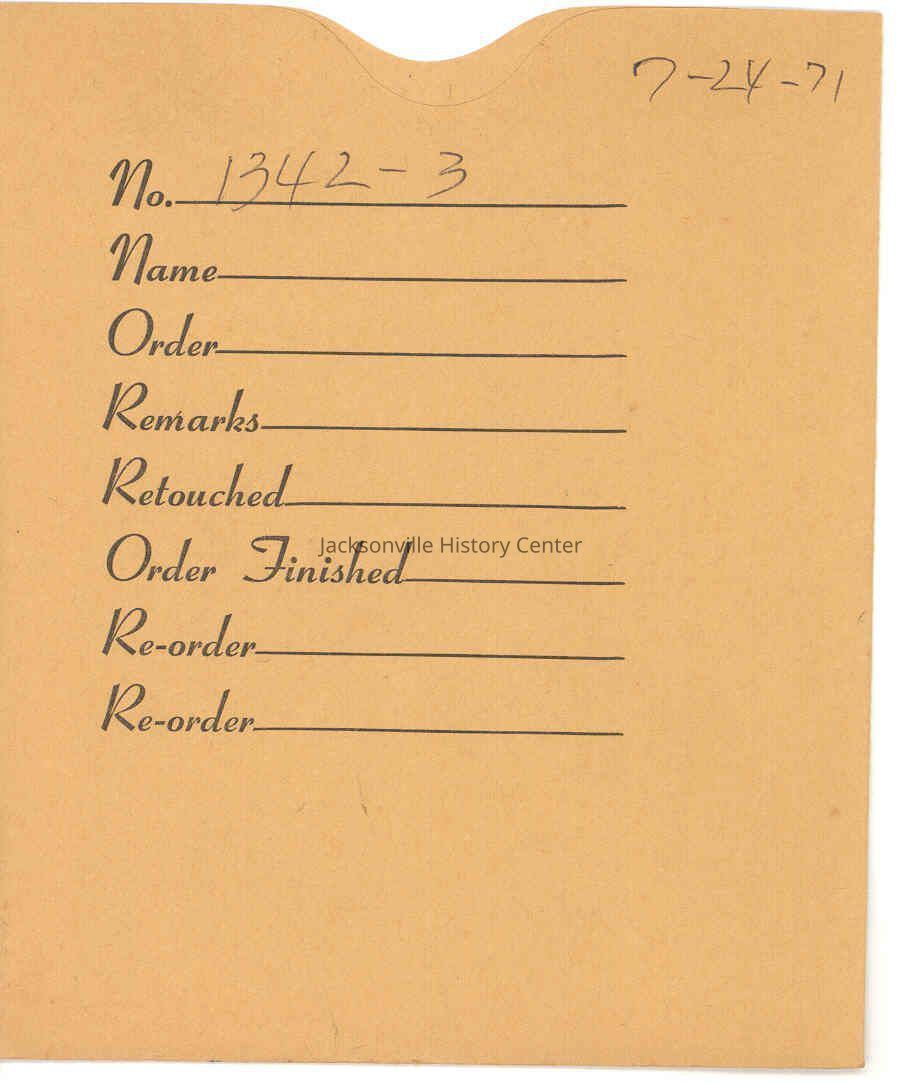 7-24-71
No. 1342-3
Name
Order
Remarks
Retouched
Jacksonville History Center
Order Finished
Re-order
Re-order